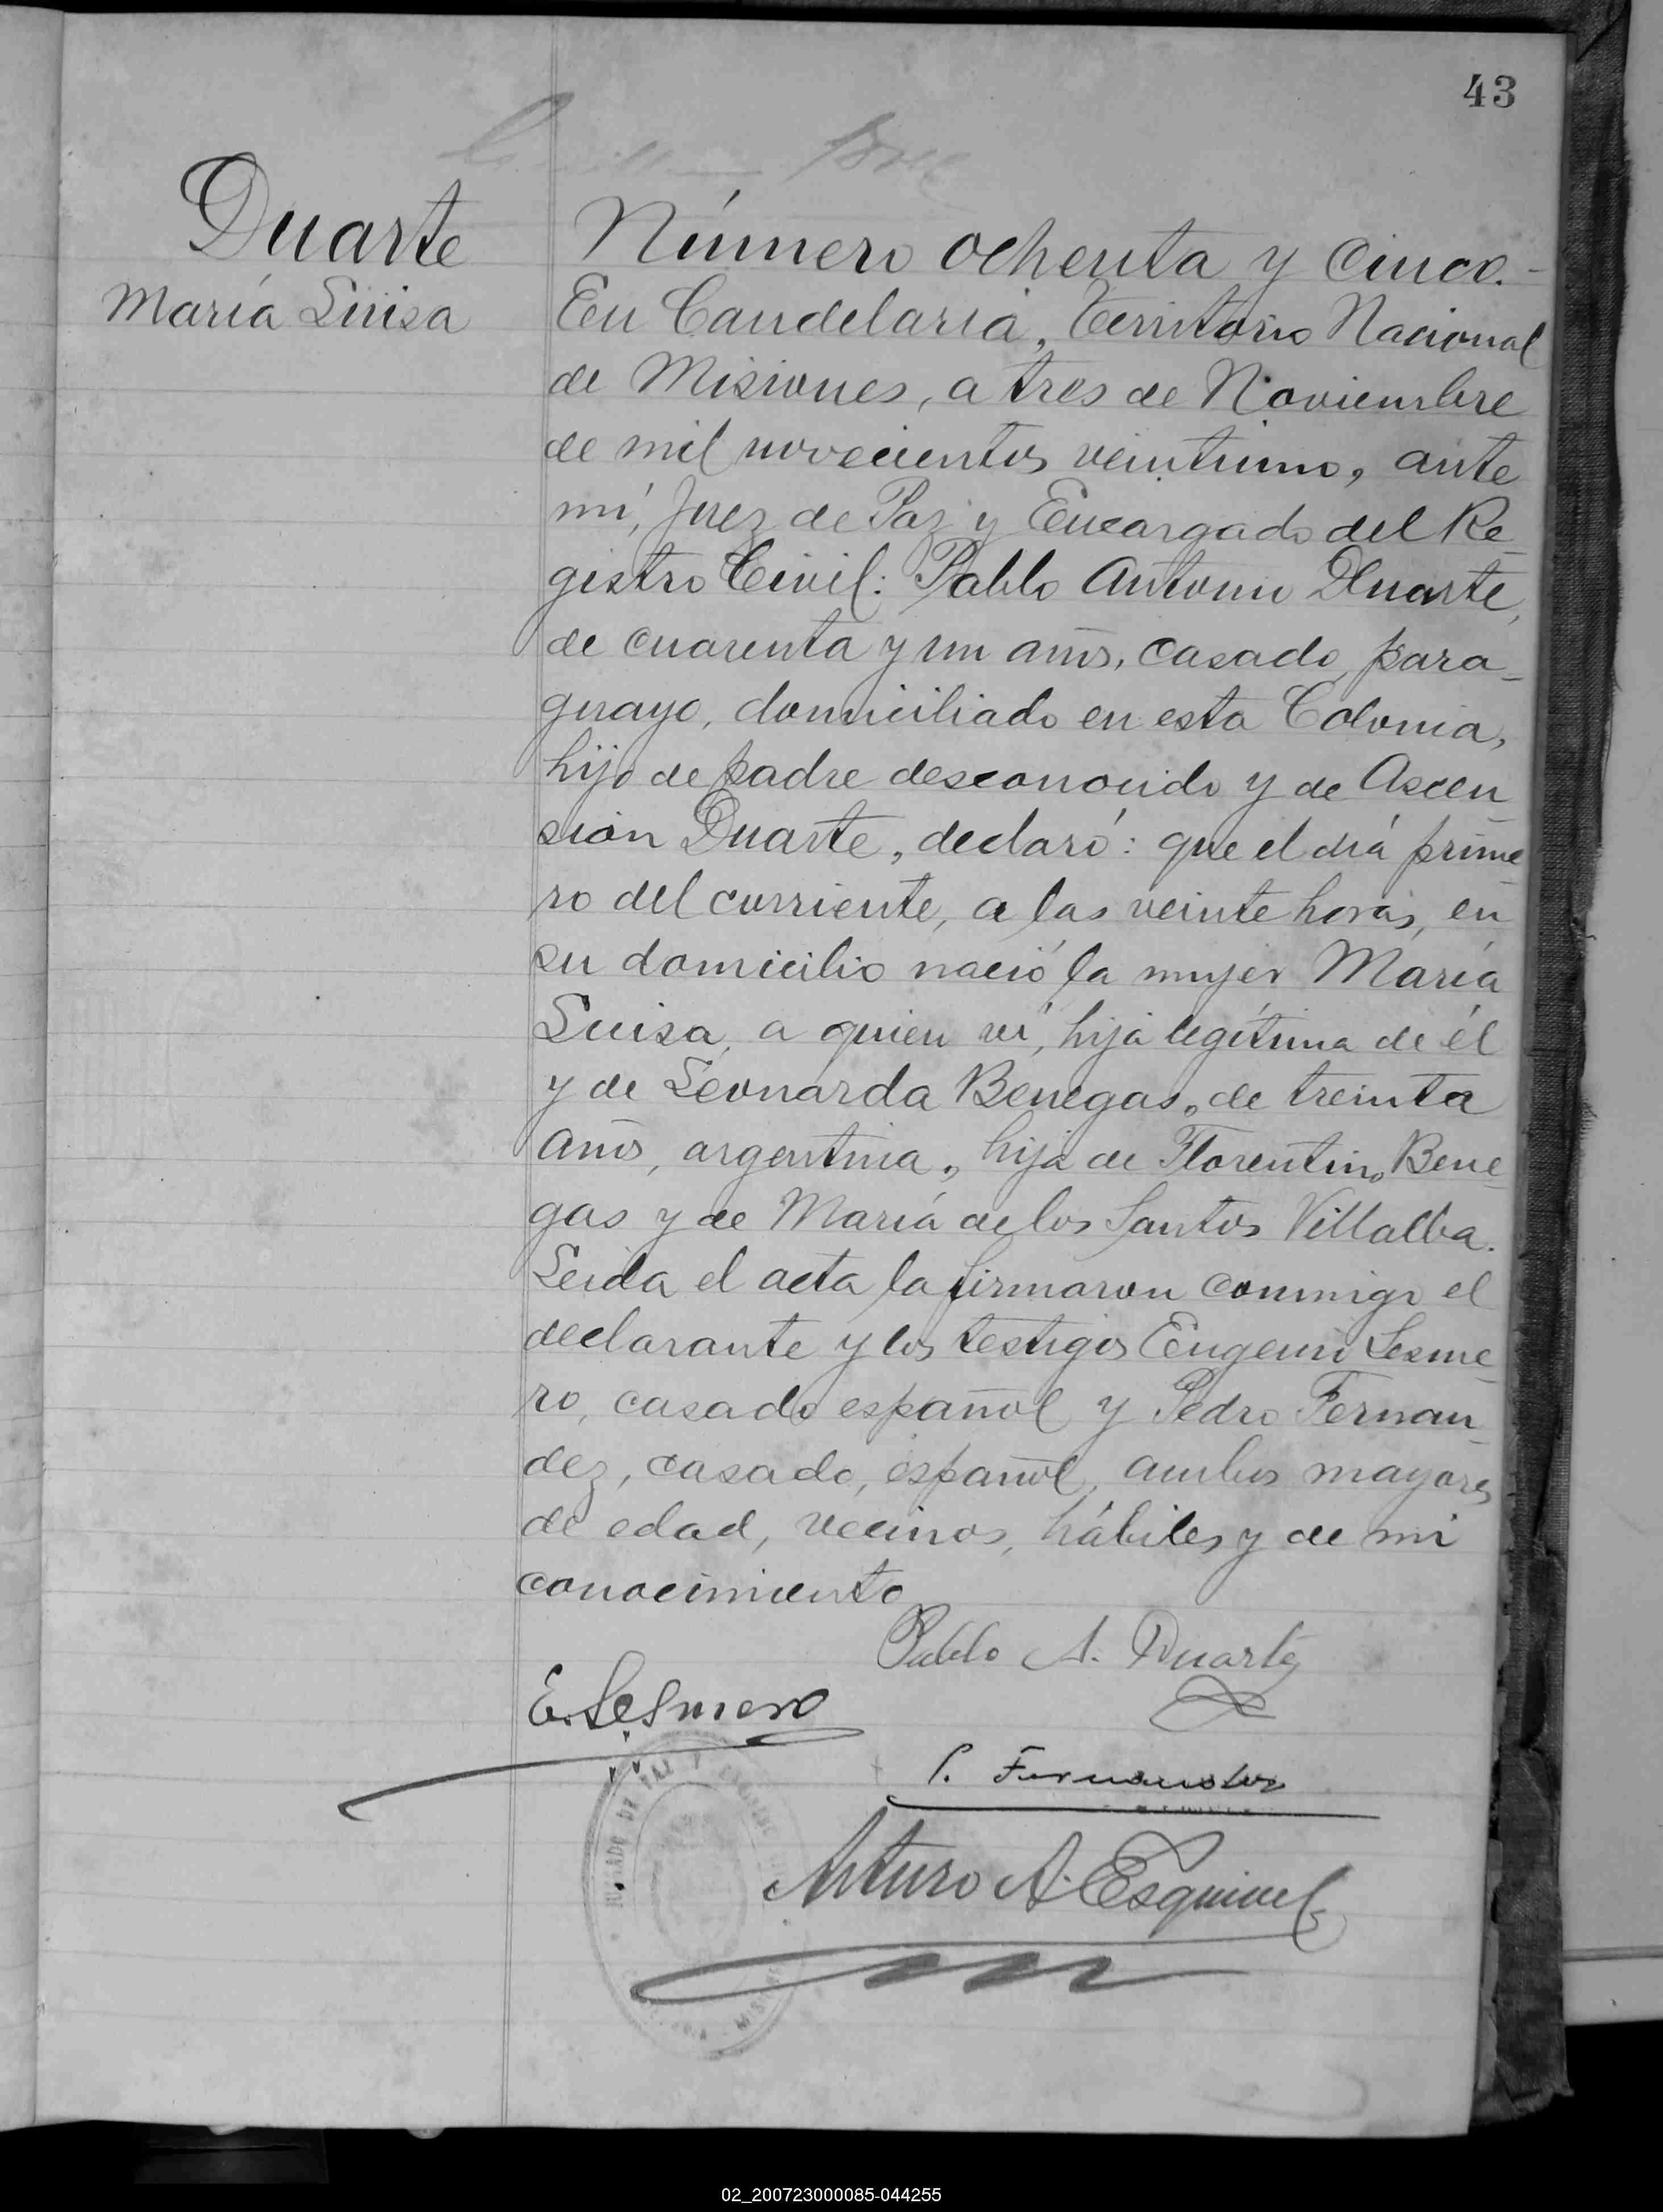 43
Duarte
María Luisa
Número ochenta y cinco.-
En Candelaria, Territorio Nacional
de Misiones, a tres de Noviembre
de mil novecientos veintiuno, ante
mí, Juez de Paz y Encargado del Re-
gistro Civil: Pablo Antonio Duarte,
de cuarenta y un años, casado, para-
guayo, domiciliado en esta Colonia,
hijo de padre desconocido y de Ascen-
sión Duarte, declaró: que el día prime-
ro del corriente, a las veinte horas, en
su domicilio nació la mujer María
Luisa, a quien ví, hija legítima de él
y de Leonarda Benegas, de treinta
años, argentina, hija de Florentino Bene-
gas y de María de los Santos Villalba.
Leida el acta la firmaron conmigo el
declarante y los testigos Eugenio Lesme-
ro, casado español y Pedro Fernan-
dez, casado, español, ambos mayores
de edad, vecinos, hábiles y de mi
conocimiento
Pablo A. Duarte
E. Lesmero
P. Fernandez
Arturo A. Esquivel
02_200723000085-044255